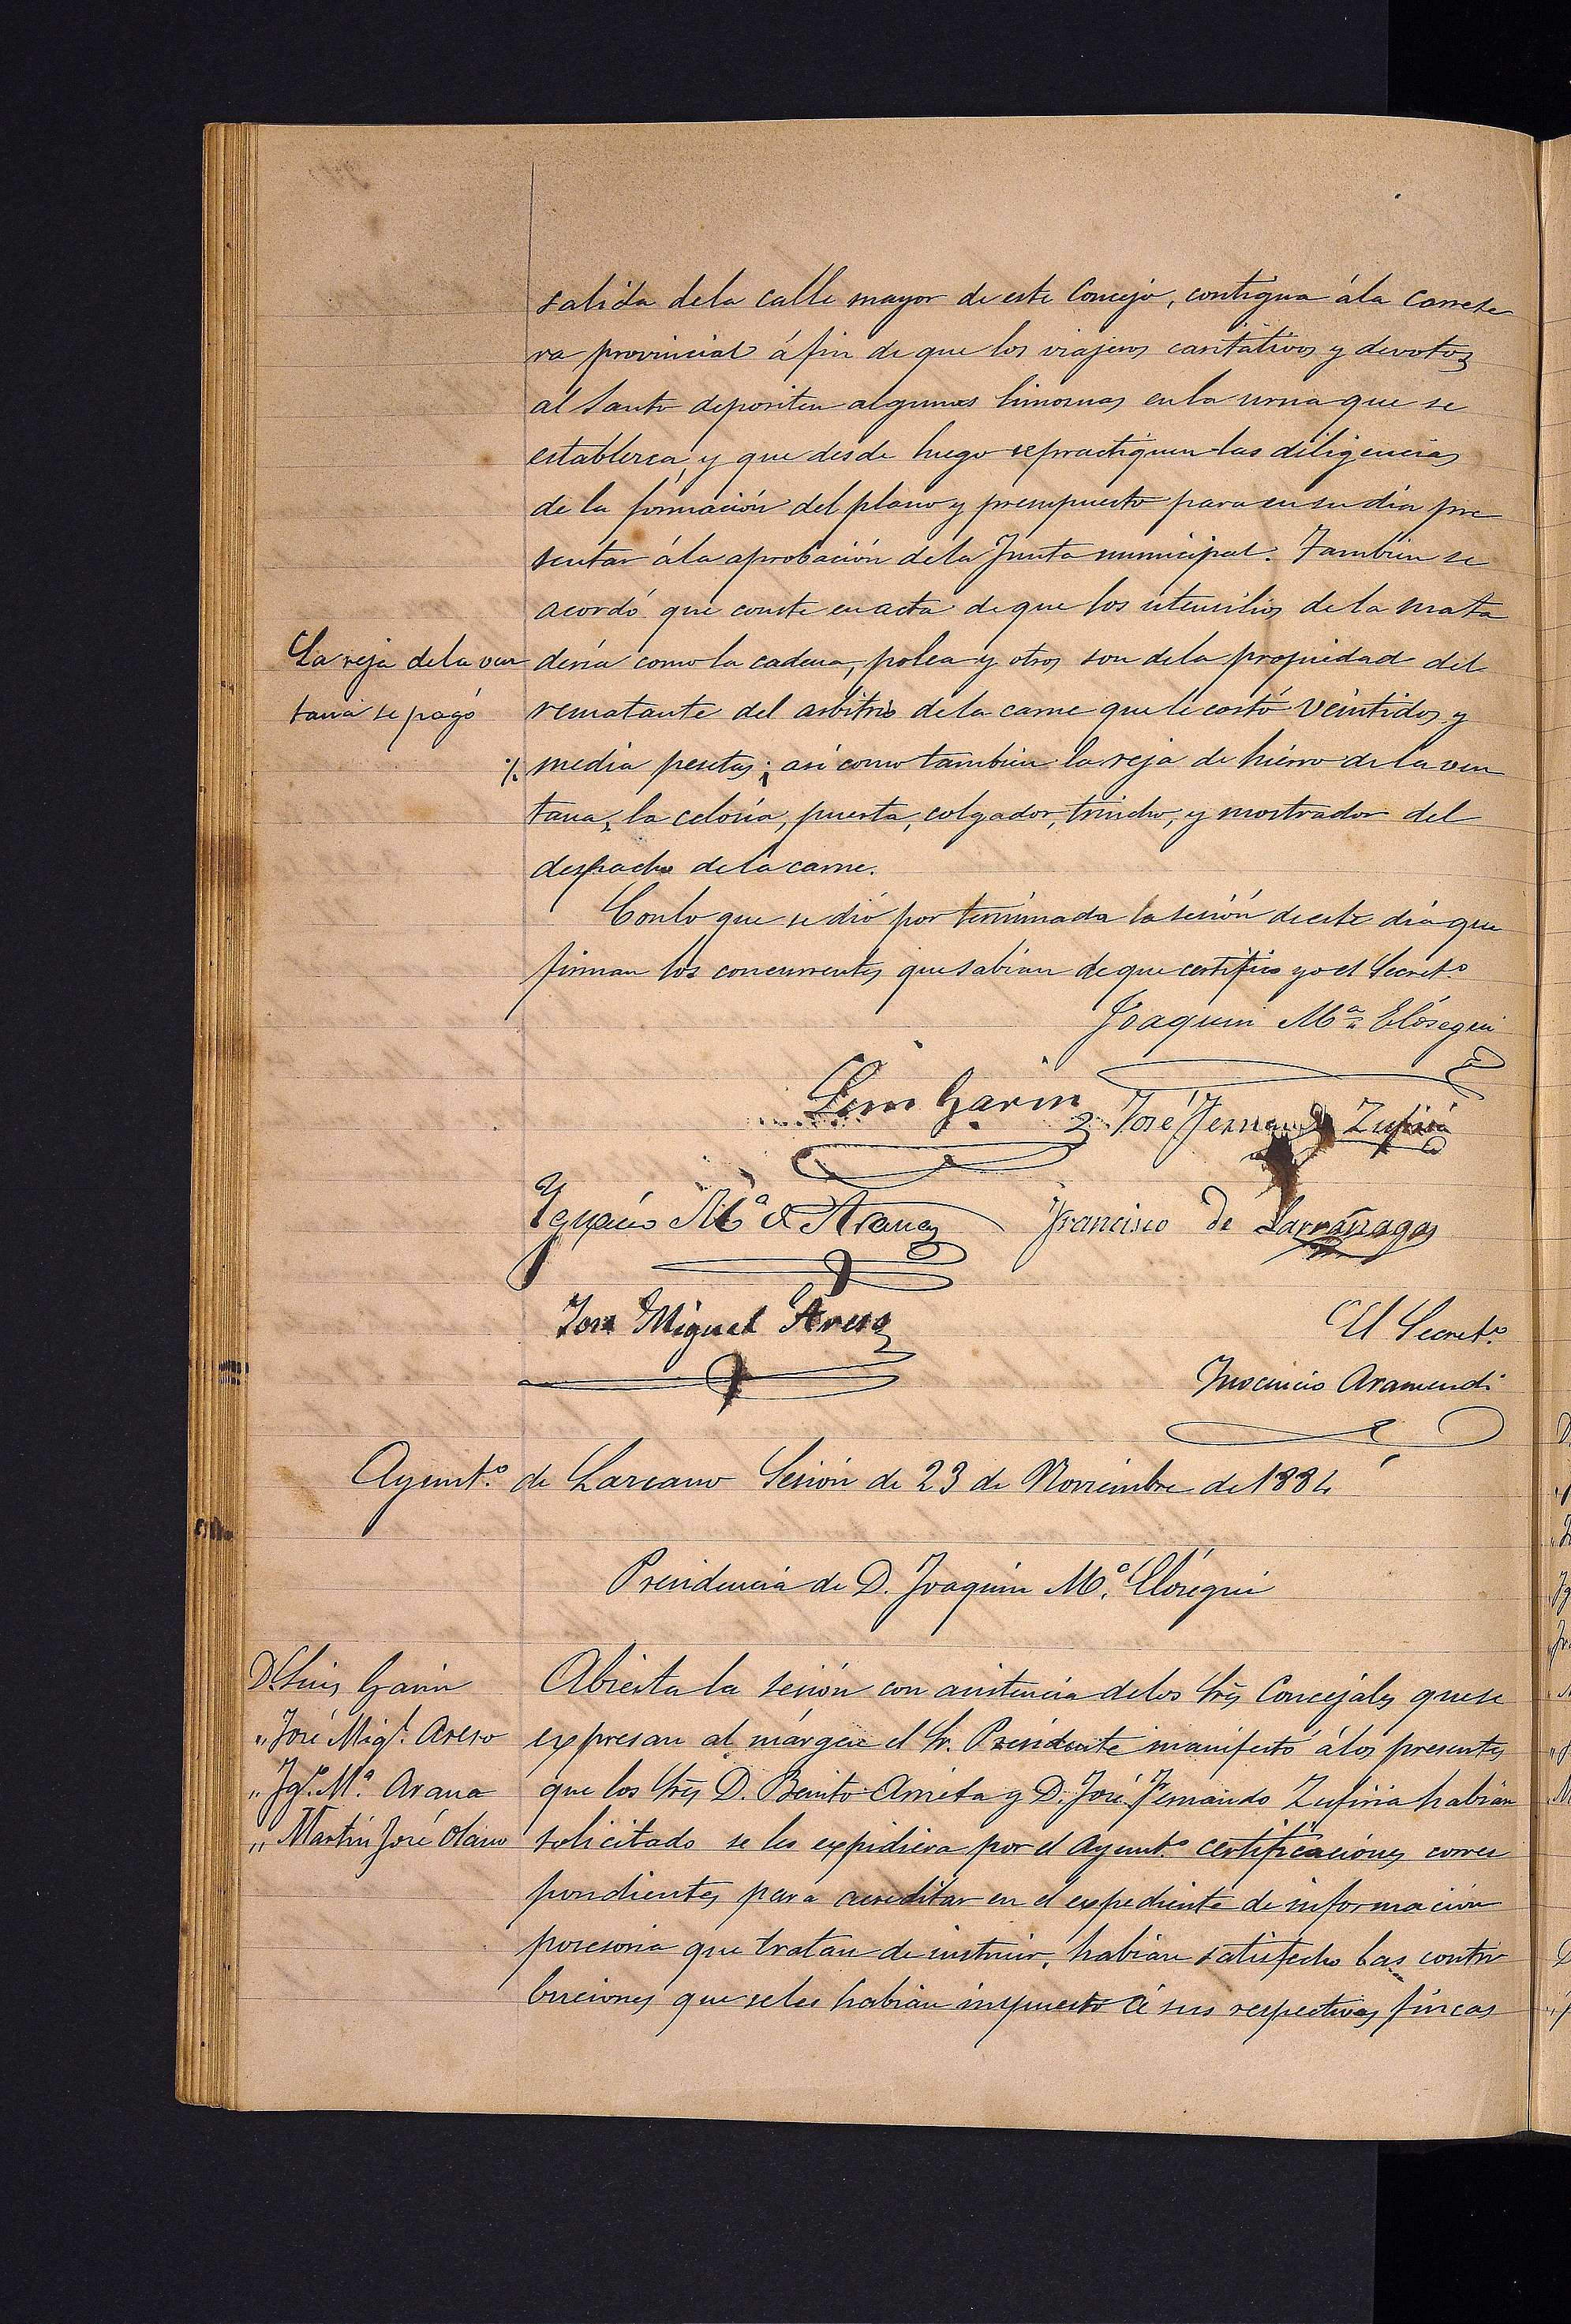 salida dela calle mayor de este Concejo, contigua ála carrete
ra provincial á fin de que los viajeros caritativos y devotos
al Santo depositen algunas limosnas en la urna que se
establezca, y que desde luego se practiquen las diligencias
de la formación del plano y presupuesto para en su dia pre
sentar ála aprobación dela Junta municipal. Tambien se
acordó que conste en acta de que los utensilios de la mata
La reja dela ven
tana se pagó
deria como la cadena, polea y otros son dela propiedad del
rematante del arbitrio dela carne que le costó veintidos y
% media pesetas; asi como tambien la reja de hierro dela ven
tana, la celosia, puerta, colgador, trincho, y mostrador del
despacho dela carne.
Conlo que se dió por terminada la sesión deeste dia que
firman los concurrentes que sabian de que certifico yo el Secret.o
Joaquin M.a Elósegui
Luis Garin
José Fernando Zufiria
Ygnacio M.a de Arana
Francisco de Larrañaga
Jose Miguel Areso
El Secret.o
Inocencio Aramendi
Ayunt.o de Lazcano Sesión de 23 de Noviembre de 1884
Presidencia de D. Joaquin M.a Elósegui
D. Luis Garin
" José Mig.l Areso
" Jg.o M.a Arana
" Martin José Olano
Abierta la sesión con asistencia delos Sres Concejales quese
expresan al márgen el Sr. Presidente manifestó álos presentes
que los Sres D. Benito Arrieta y D. José Fernando Zufiria habian
solicitado se les expidiera por el Ayunt.o certificaciones corres
pondientes para acreditar en el expediente de informacion
posesoria que tratan de instruir, habian satisfecho las contri
buciones que seles habian impuesto á sus respectivas fincas